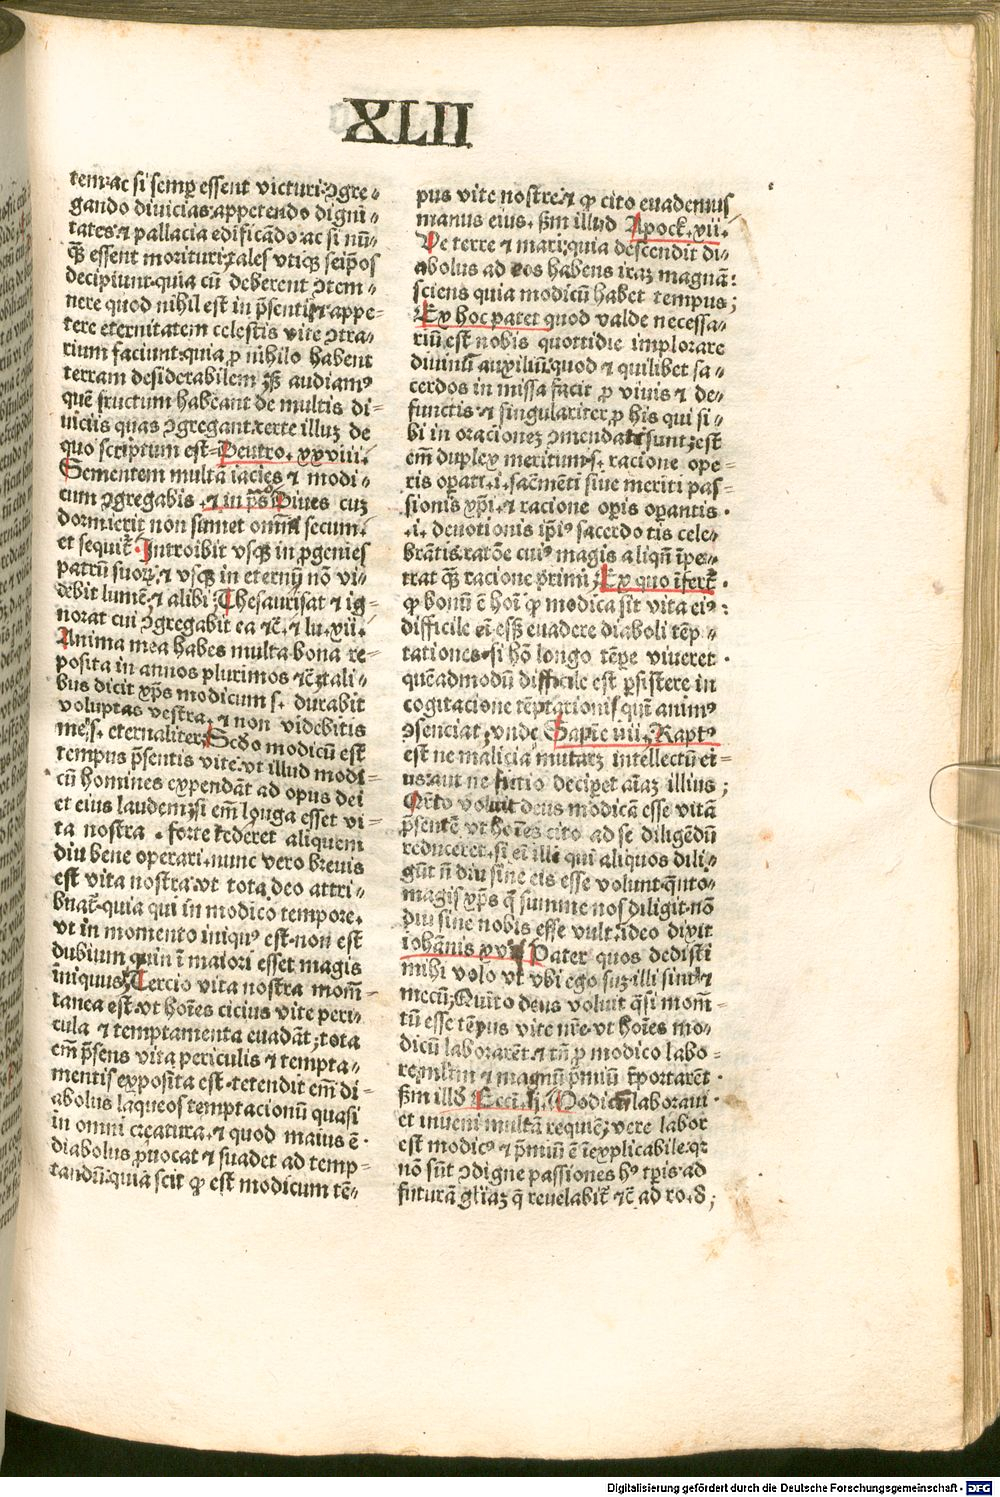 XLII
tem·ac si semꝑ essent victuri·ꝯgre⸗
gando diuicias·appetendo digni⸗
tates·⁊ pallacia edificādo·ac si nū⸗
qȝ essent morituri·tales vtiqȝ seip̄os
decipiunt·quia cū deberent ꝯtem⸗
nere quod nihil est in p̄senti·⁊ appe⸗
tere eternitatem celestis vite ꝯtra⸗
rium faciunt·quia ꝓ nihilo habent
terram desiderabilem audiamꝰ
quē fructum habeant de multis di⸗
uiciis quas ꝯgregant·certe illuȝ de
quo scriptum est·Deutro. xxviii.
Sementem multa iacies ⁊ modi⸗
cum ꝯgregabis .⁊ in p̄s Diues cuȝ
dormierit non sumet omnia secum.
et sequit᷑·Introibit vsqȝ in ꝓgenies
patrū suoꝝ.⁊ vsqȝ in eternū nō vi⸗
debit lumē.⁊ alibi·Thesaurisat ⁊ ig⸗
norat cui ꝯgregabit ea ⁊c̄.⁊ lu. xii.
Anima mea habes multa bona re⸗
posita in annos plurimos ⁊c̄ tali⸗
bus dicit xp̄s modicum s. durabit
voluptas vestra .⁊ non videbitis
me·s. eternaliter·Scd̄o modicū est
tempus p̄sentis vite·vt illud modi⸗
cū homines expendāt ad opus dei
et eius laudem·si em̄ longa esset vi⸗
ta nostra . forte tederet aliquem
diu bene operari.nunc vero breuis
est vita nostra·vt tota deo attri⸗
buat᷑·quia qui in modico tempore.
vt in momento iniquꝰ est·non est
dubium quin ī maiori esset magis
iniquus·Tercio vita nostra mom̄⸗
tanea est·vt hoīes cicius vite peri⸗
cula ⁊ temptamenta euadāt·tota
em̄ p̄sens vita periculis ⁊ tempta⸗
mentis exposita est·tetendit em̄ di⸗
abolus laqueos temptacionū quasi
in omni creatura.⁊ quod maius ē·
diabolus ꝓuocat ⁊ suadet ad temp⸗
tandū·quia scit ꝙ est modicum tē⸗
pus vite nostre·⁊ ꝙ cito euademus
manus eius. ẜm illud Apock. xii.
Ve terre ⁊ mari·quia descendit di⸗
abolus ad vos habens iraȝ magnā:
sciens quia modicū habet tempus;
Ex hoc patet quod valde necessa⸗
riū est nobis quottidie implorare
diuinū auxiliū·quod ⁊ quilibet sa⸗
cerdos in missa facit ꝓ viuis ⁊ de⸗
functis·⁊ singulariter ꝓ his qui si⸗
bi in oracioneȝ ꝯmendati sunt·est
em̄ duplex meritum·s. racione ope⸗
ris oꝑati.i. sacm̄enti siue meriti pas⸗
sionis xp̄i.⁊ racione opis oꝑantis·
.i. deuotionis ip̄iꝰ sacerdotis cele⸗
brātis·ratōne cuiꝰ magis aliqn̄ īpe⸗
trat qȝ racione primi;Ex quo īfert᷑·
ꝙ bonū ē hoī ꝙ modica sit vita eiꝰ:
difficile em̄ esset euadere diaboli tēp⸗
tationes·si hō longo tēꝑe viueret·
quēadmodū difficile est ꝑsistere in
cogitacione tēptationis quin animꝰ
ꝯsenciat·vnde Sapiē iiii. Raptꝰ
est ne malicia mutaret intellectū ei⸗
us·aut ne fictio deciperet aīaȝ illius;
Qrto voluit deus modicā esse vitā
p̄sentē vt hoīes cito ad se diligēdū
reduceret.si em̄ illi qui aliquos dili⸗
gūt n̄ diu sine eis esse volunt·qnto⸗
magis xp̄s q̄ summe nos diligit·nō
diu sine nobis esse vult·ideo dixit
iohānis xvii Pater quos dedisti
mihi volo vt vbi ego suȝ·illi sint·⁊
mecū;Quīto deus voluit q̄si mom̄⸗
tū esse tēpus vite nr̄e·vt hoīes mo⸗
dicū laborarēt·⁊ tn̄ ꝓ modico labo⸗
re multū ⁊ magnū p̄miū reportarēt·
ẜm illd̄ Ecci. li. Modicū laboraui·
et inueni multā requiē; vere labor
est modicꝰ ⁊ p̄miū ē īexplicabile·qr
nō sūt ꝯdigne passiones hꝰ tp̄is·ad
futurā glīaȝ q̄ reuelabit᷑ ⁊c̄ ad ro. 8;
Digitalisierung gefördert durch die Deutsche Forschungsgemeinschaft - DFG